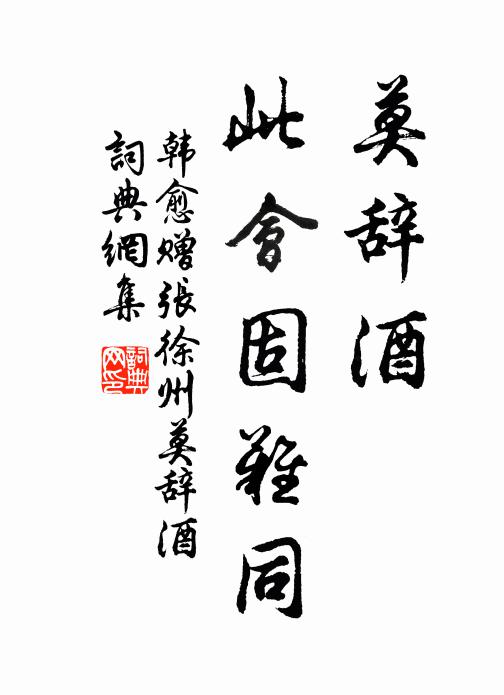 莫辞酒
此會固難同
韩愈贈張徐州莫辞酒
詞典網集
詞典网印